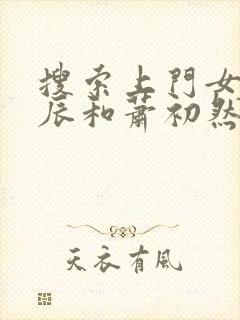 搜索上門女
辰和蕭初然
天衣有風